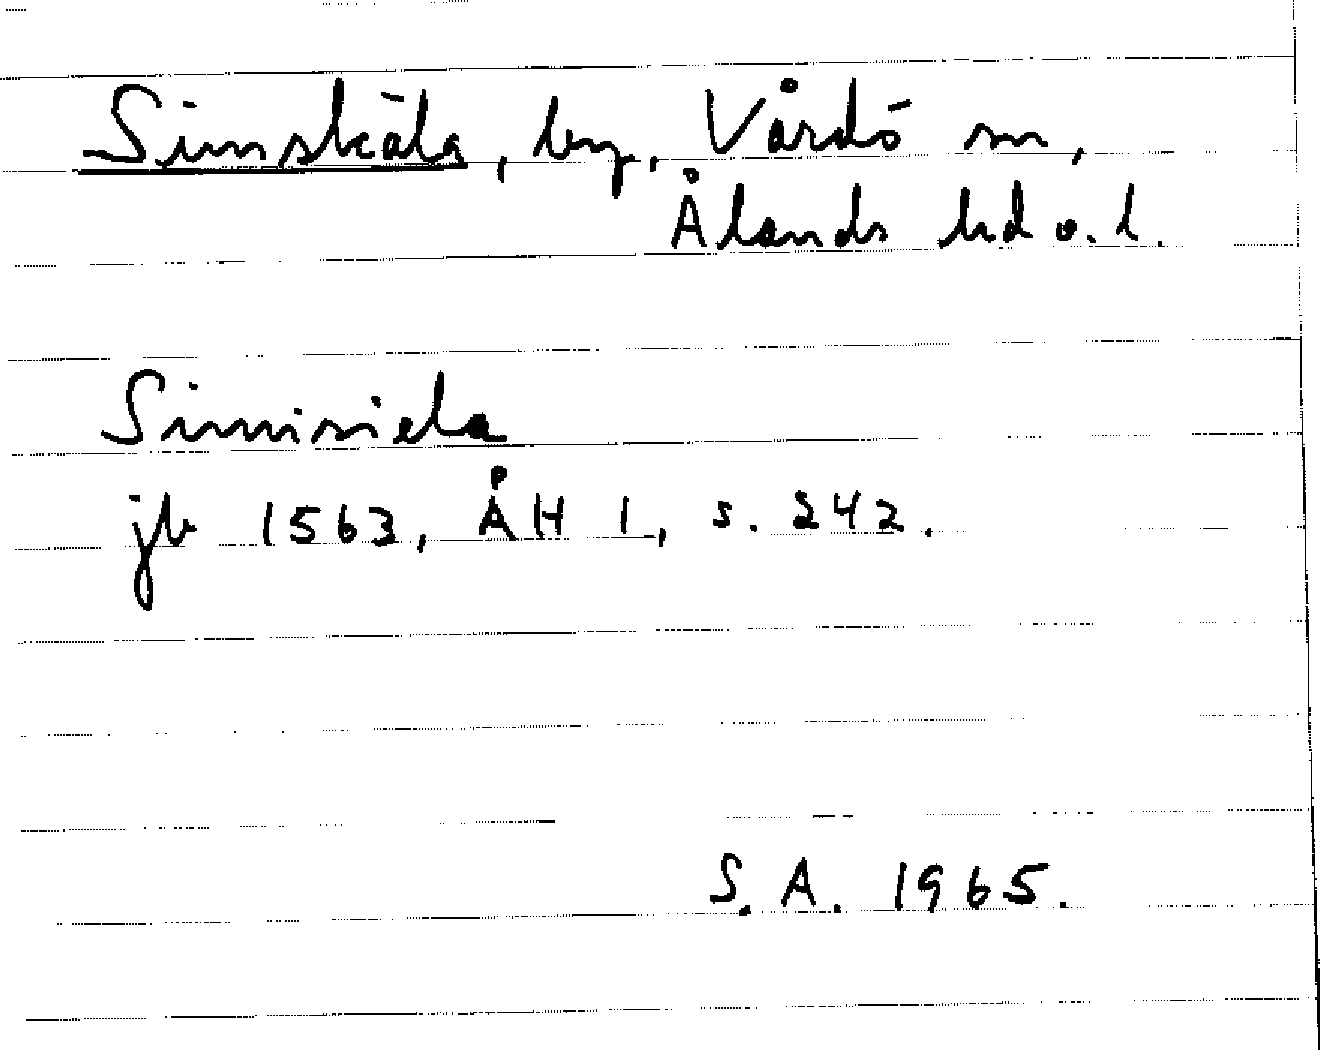 Simskäla, by, Vårdö sn,
Ålands hd o. l.
Simisiela
jb 1563, ÅH 1, s. 242.
S.A. 1965.